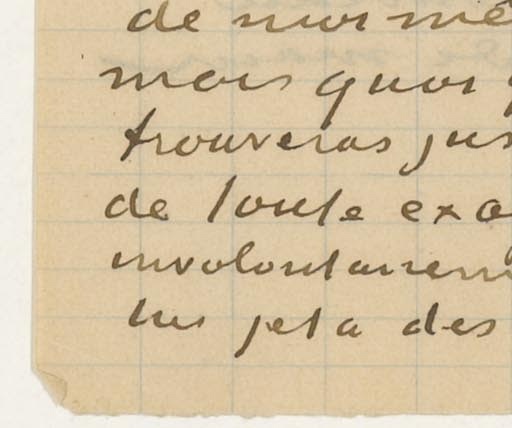 de moi mê
mais quoi q
trouveras jus
de toute exa
involontairem
lui jeta des